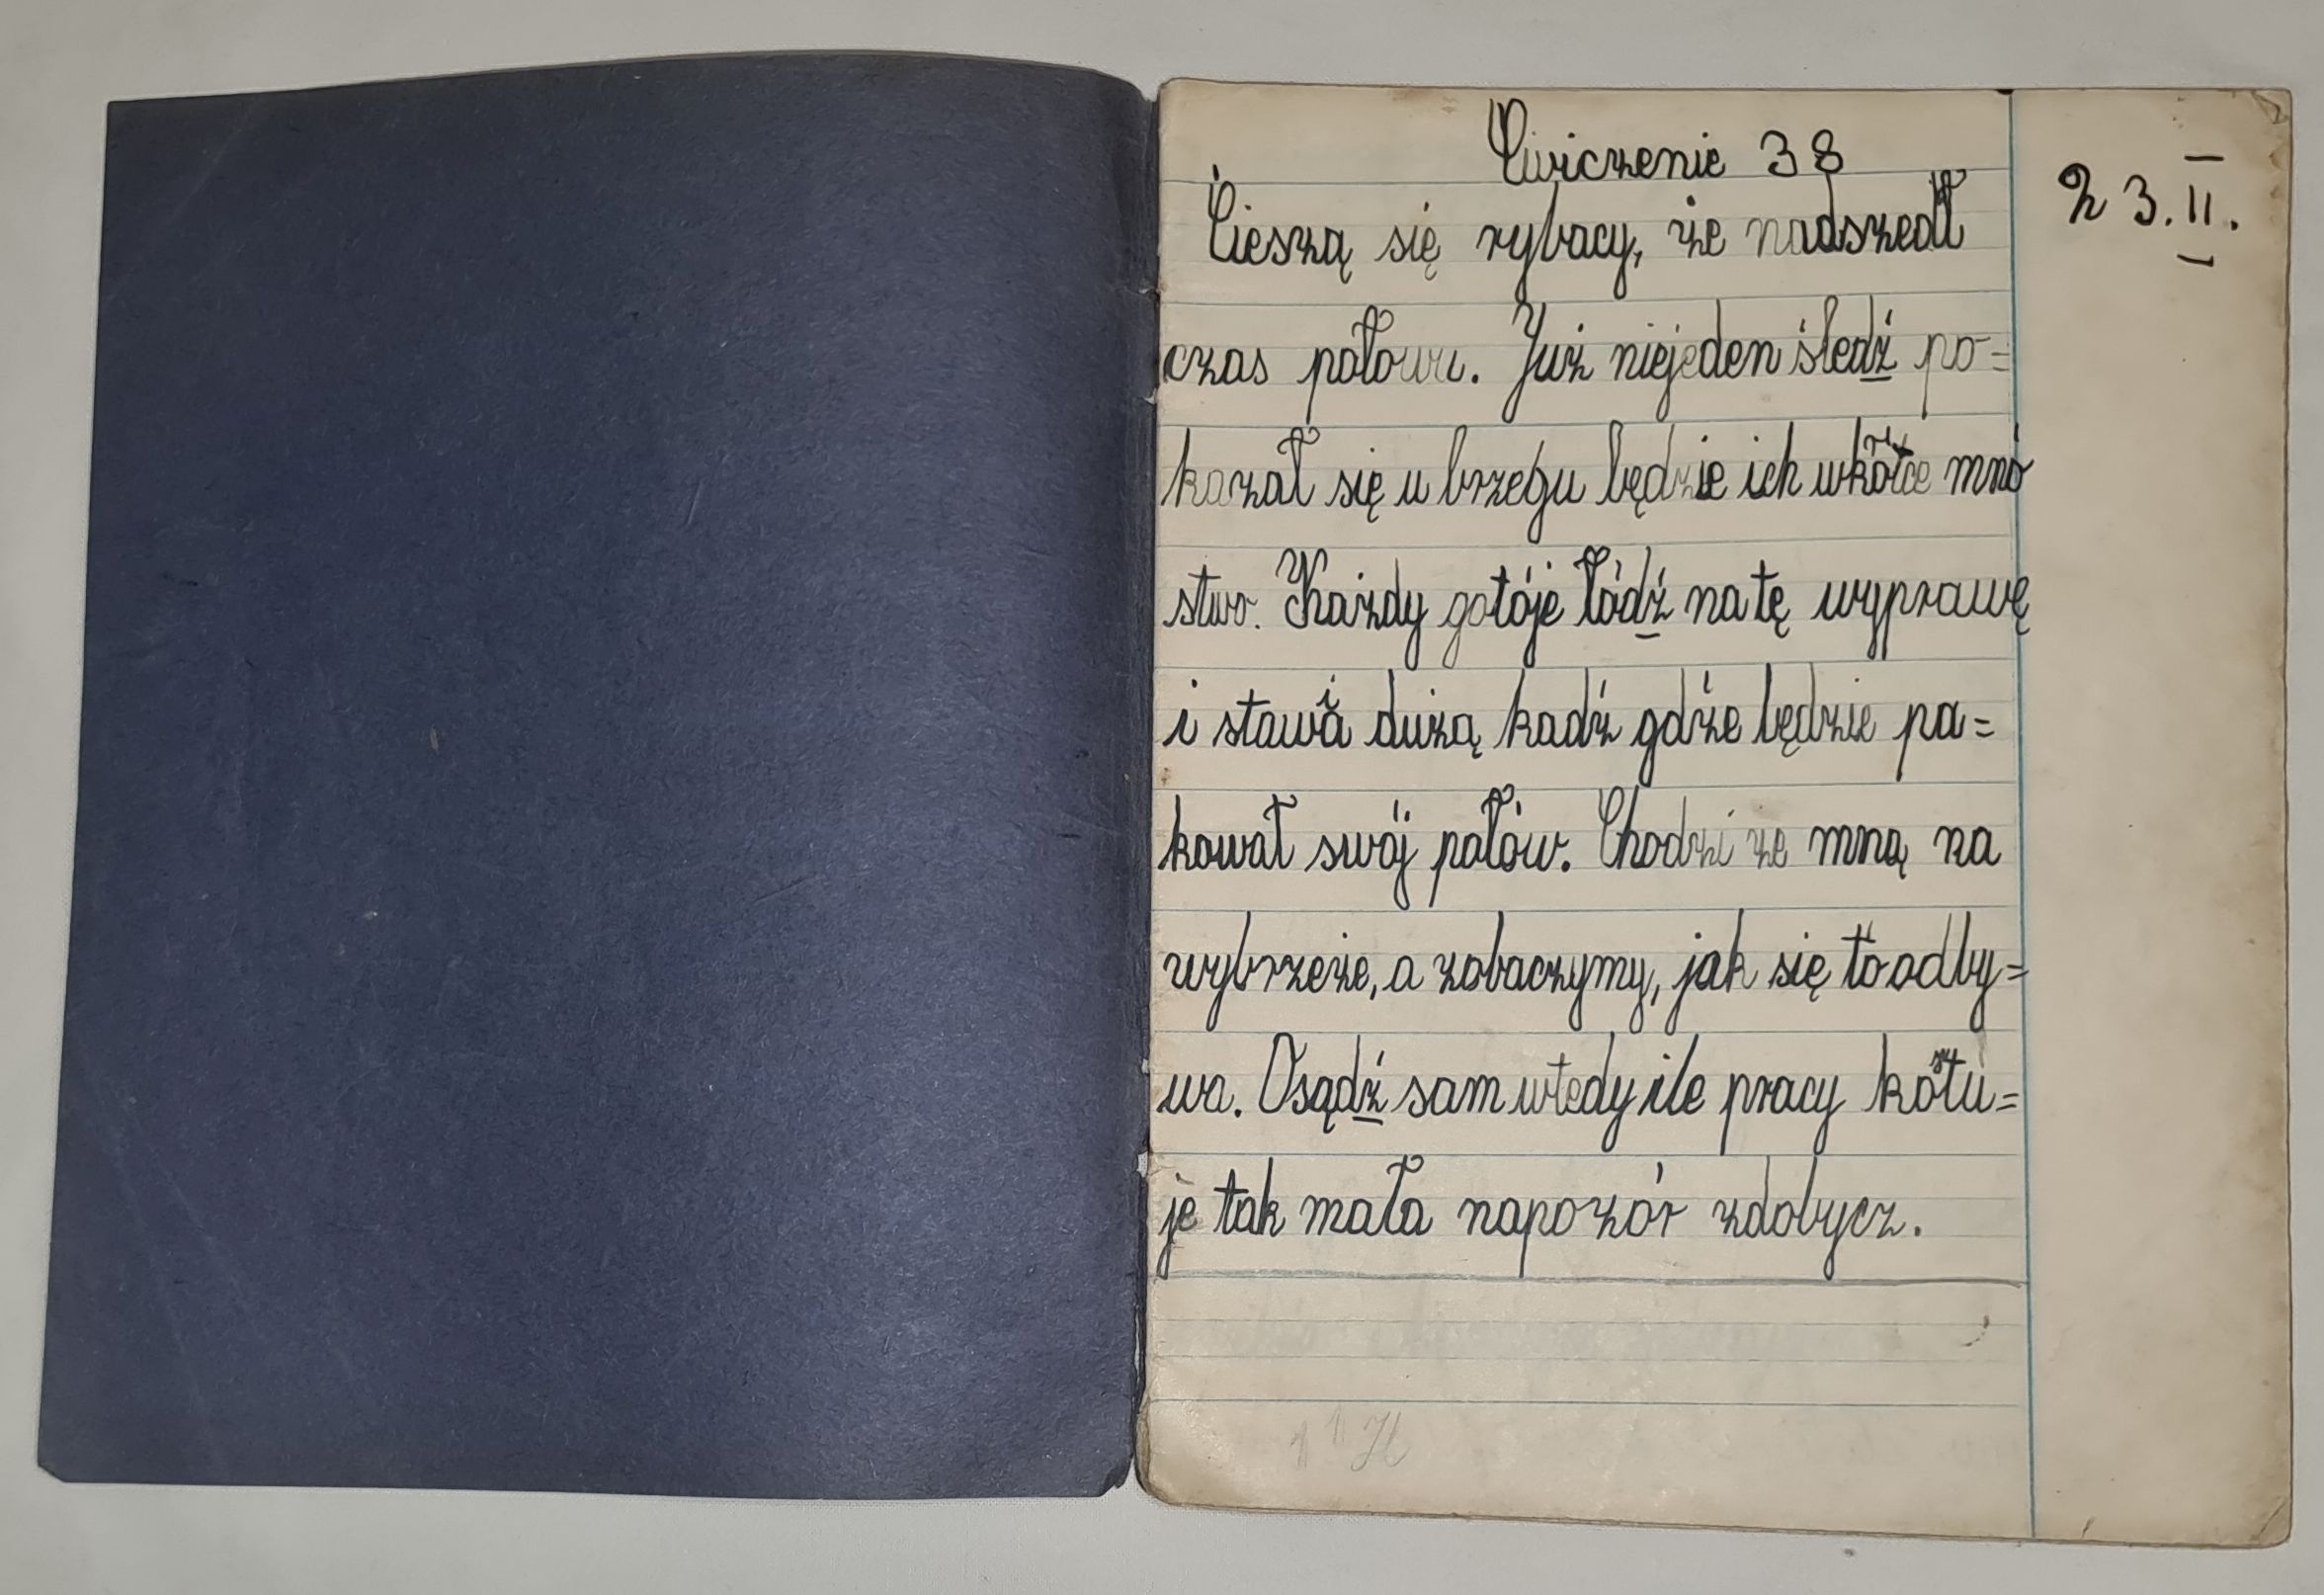 Ćwiczenie 38
23.II.
Cieszą się rybacy, że nadszedł
czas połowu. Już niejeden śledź po=
kazał się u brzegu będzie ich wkótce mnó
stwo. Każdy gotóje łódź na tę wyprawę
i stawia dużą kadź gdźe będzie pa=
kował swój połów. Chodzi ze mną na
wybrzeże, a zobaczymy, jak się to odby=
wa. Osądź sam wtedy ile pracy kosztu=
je tak mała napozór zdobycz.